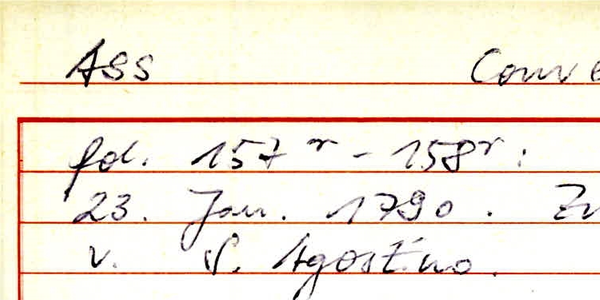 Ass Conve
fol. 157r - 158r:
23. Jan. 1790. Zu
v. S. Agostino.